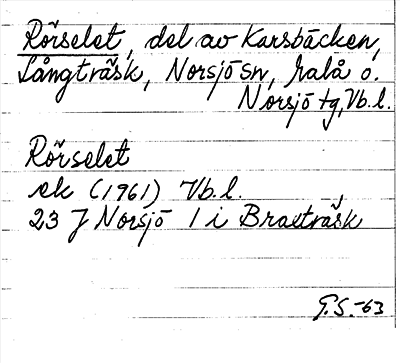 Rörselet, del av Karsbäcken,
Långträsk, Norsjö sn, Malå o.
Norsjö tg, Vb.l.
Rörselet
ek (1961) Vb.l.
23 J Norsjö 1 i Braxträsk
G.S.-63